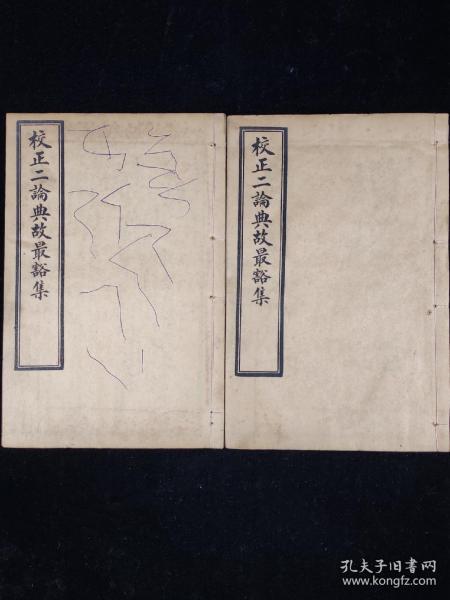 校正二論典故最豁集
校正二論典故最豁集
孔夫子旧书网
www.kongfz.com